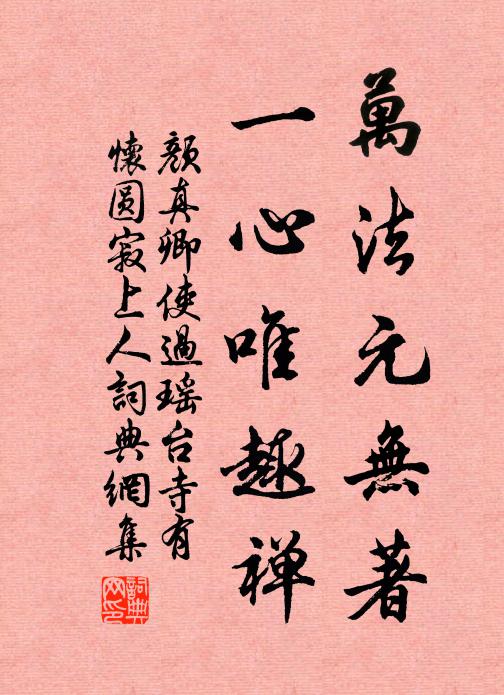 萬法元無著
一心唯趣禅
颜真卿使過瑶台寺有
懷圆寂上人詞典網集
詞典網印